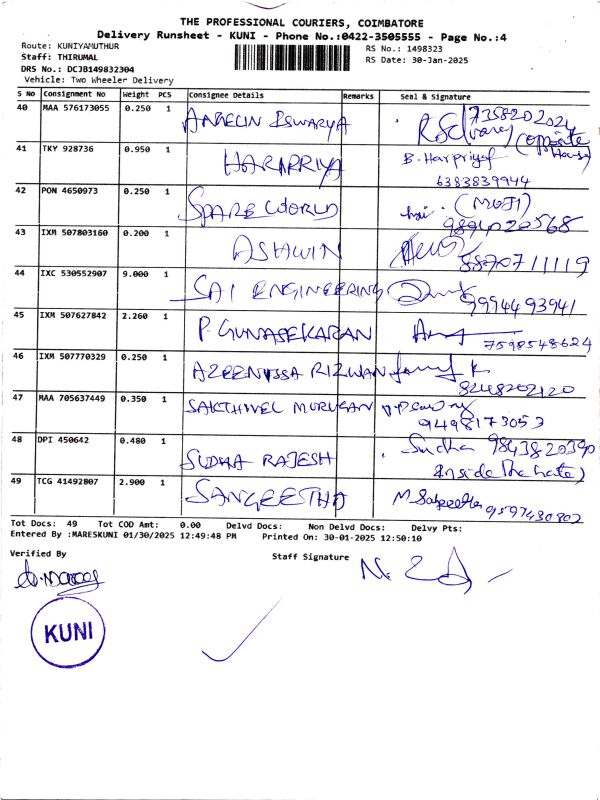 THE PROFESSIONAL COURIERS, COIMBATORE
Delivery Runsheet - KUNI - Phone No.:0422-3505555 - Page No.:4
Route: KUNIYAMUTHUR RS No.: 1498323
Staff: THIRUMAL RS Date: 30-Jan-2025
DRS No.: DCJB149832304
Vehicle: Two Wheeler Delivery
S No Consignment No Weight PCS Consignee Details Remarks Seal & Signature
40 MAA 576173055 0.250 1 ANGELIN ESWARYA 7358202021
(opposite House)
41 TKY 928736 0.950 1 HARIPRIYA B. Haripriya
6383839944
42 PON 4650973 0.250 1 SPARE WORLD
9894020568
43 IXM 507803160 0.200 1 ASHWIN
8870711119
44 IXC 530552907 9.000 1 SAI ENGINEERING
9994493941
45 IXM 507627842 2.260 1 P. GUNASEKARAN
7598548624
46 IXM 507770329 0.250 1 AZEENISSA RIZWAN
8248202120
47 MAA 705637449 0.350 1 SAKTHIVEL MURUGAN
9498173053
48 DPI 450642 0.480 1 SUDHA RAJESH Sudha 9843820390
(Inside The Gate)
49 TCG 41492807 2.900 1 SANGEETHA M. Sangeetha 9597430802
Tot Docs: 49 Tot COD Amt: 0.00 Delvd Docs: Non Delvd Docs: Delvy Pts:
Entered By :MARESKUNI 01/30/2025 12:49:48 PM Printed On: 30-01-2025 12:50:10
Verified By Staff Signature
KUNI